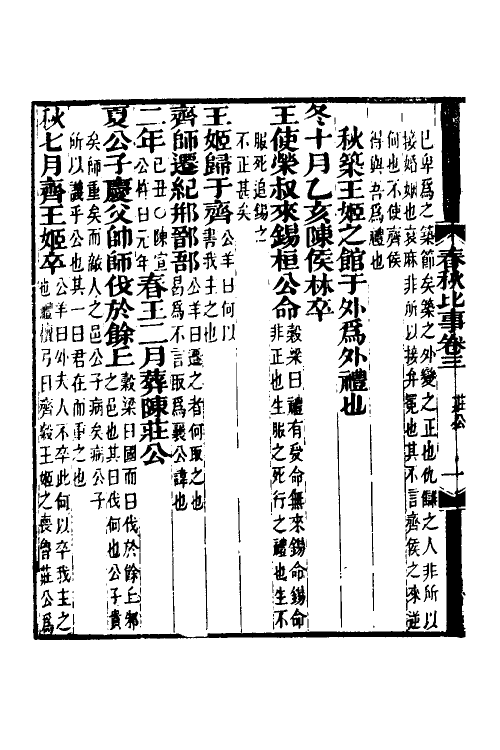 春秋比事卷三
莊公
一
已卑爲之築節矣築之外變之正也仇讎之人非所以
接婚姻也衰麻非所以接弁冕也其不言齊侯之來逆
何也不使齊侯
得與吾爲禮也
秋築王姬之館于外爲外禮也
冬十月乙亥陳侯林卒
王使榮叔來錫桓公命
穀梁曰禮有受命無來錫命錫命
非正也生服之死行之禮也生不
服死追錫之
不正甚矣
王姬歸于齊
公羊曰何以
書我主之也
齊師遷紀郱鄑郚
公羊曰遷之者何取之也
曷爲不言取爲襄公諱也
二年
已丑〇陳宣
公杵臼元年
春王二月葬陳莊公
夏公子慶父帥師伐於餘丘
穀梁曰國而曰伐於餘丘邾
之邑也其曰伐何也公子貴
矣師重矣而敵人之邑公子病矣病公子
所以譏乎公也其一曰君在而重之也
秋七月齊王姬卒
公羊曰外夫人不卒此何以卒我主之
也禮檀弓曰齊穀王姬之喪魯莊公爲